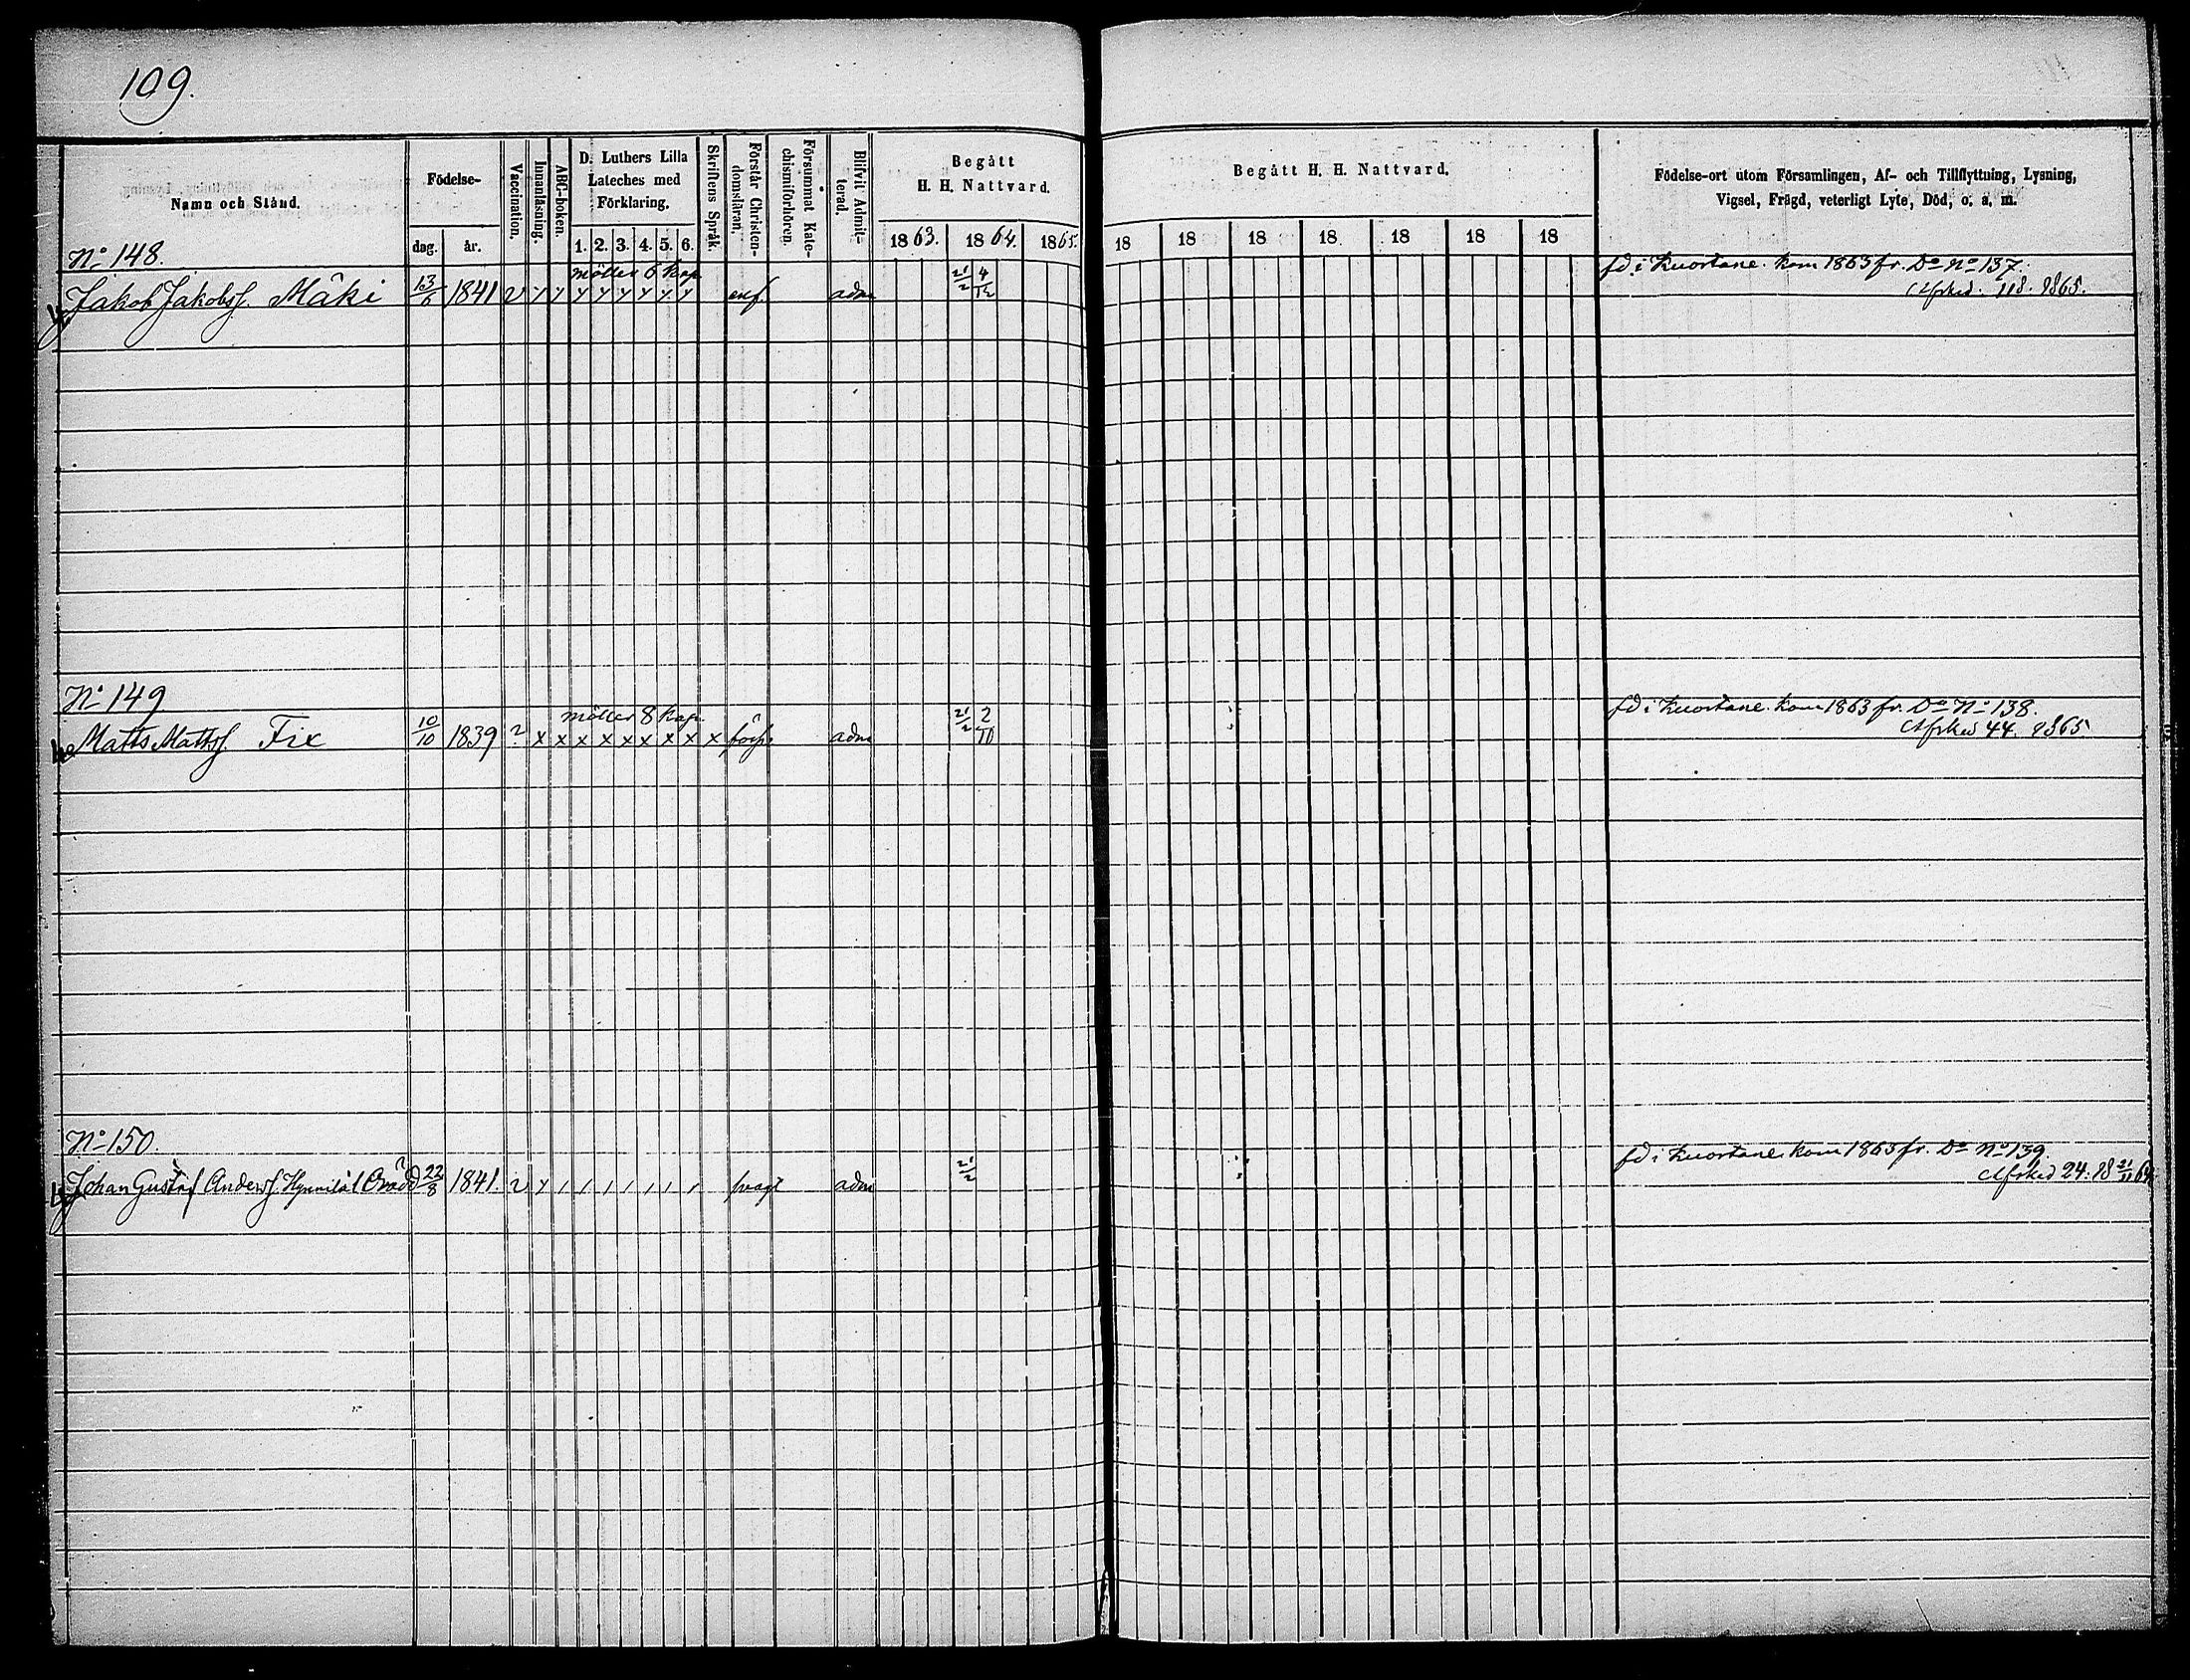 109.
Namn och Stånd.
Födelse-
dag. år.
Vaccination.
Innanläsning.
ABC-boken.
D. Luthers Lilla
Lateches med
Förklaring.
1. 2. 3. 4. 5. 6.
Skriftens Språk.
Förstår Christen-
domsläran.
Försummat Kate-
chismiförhören.
Blifvit Admit-
terad.
Begått
H. H. Nattvard.
1863. 1864. 1865.
Begått H. H. Nattvard.
18 18 18 18 18 18 18
Födelse-ort utom Församlingen, Af- och Tillflyttning, Lysning,
Vigsel, Frägd, veterligt Lyte, Död, o. a. m.
No 148.
möller 6 kap
Jakob Jakobss. Mäki 13/6 1841 v y y y y y y y y enf adm 21/2 4/12
fd i Kuortane. kom 1863 fr. Do No 137.
Afsked. 118. 1865.
No 149
möller 8 kap
Matts Mattss. Fix 10/10 1839 ? x x x x x x x x x förs. adm 21/2 2/10
fd i Kuortane. kom 1863 fr. Do No 138.
Afsked 44. 1865
No 150.
Johan Gustaf Anderss. 22/8 1841. v y / / / / / / / svagt adm 21/2
fd i Kuortane. kom 1863 fr. Do No 139.
Afsked 24. 18 21/11 64.